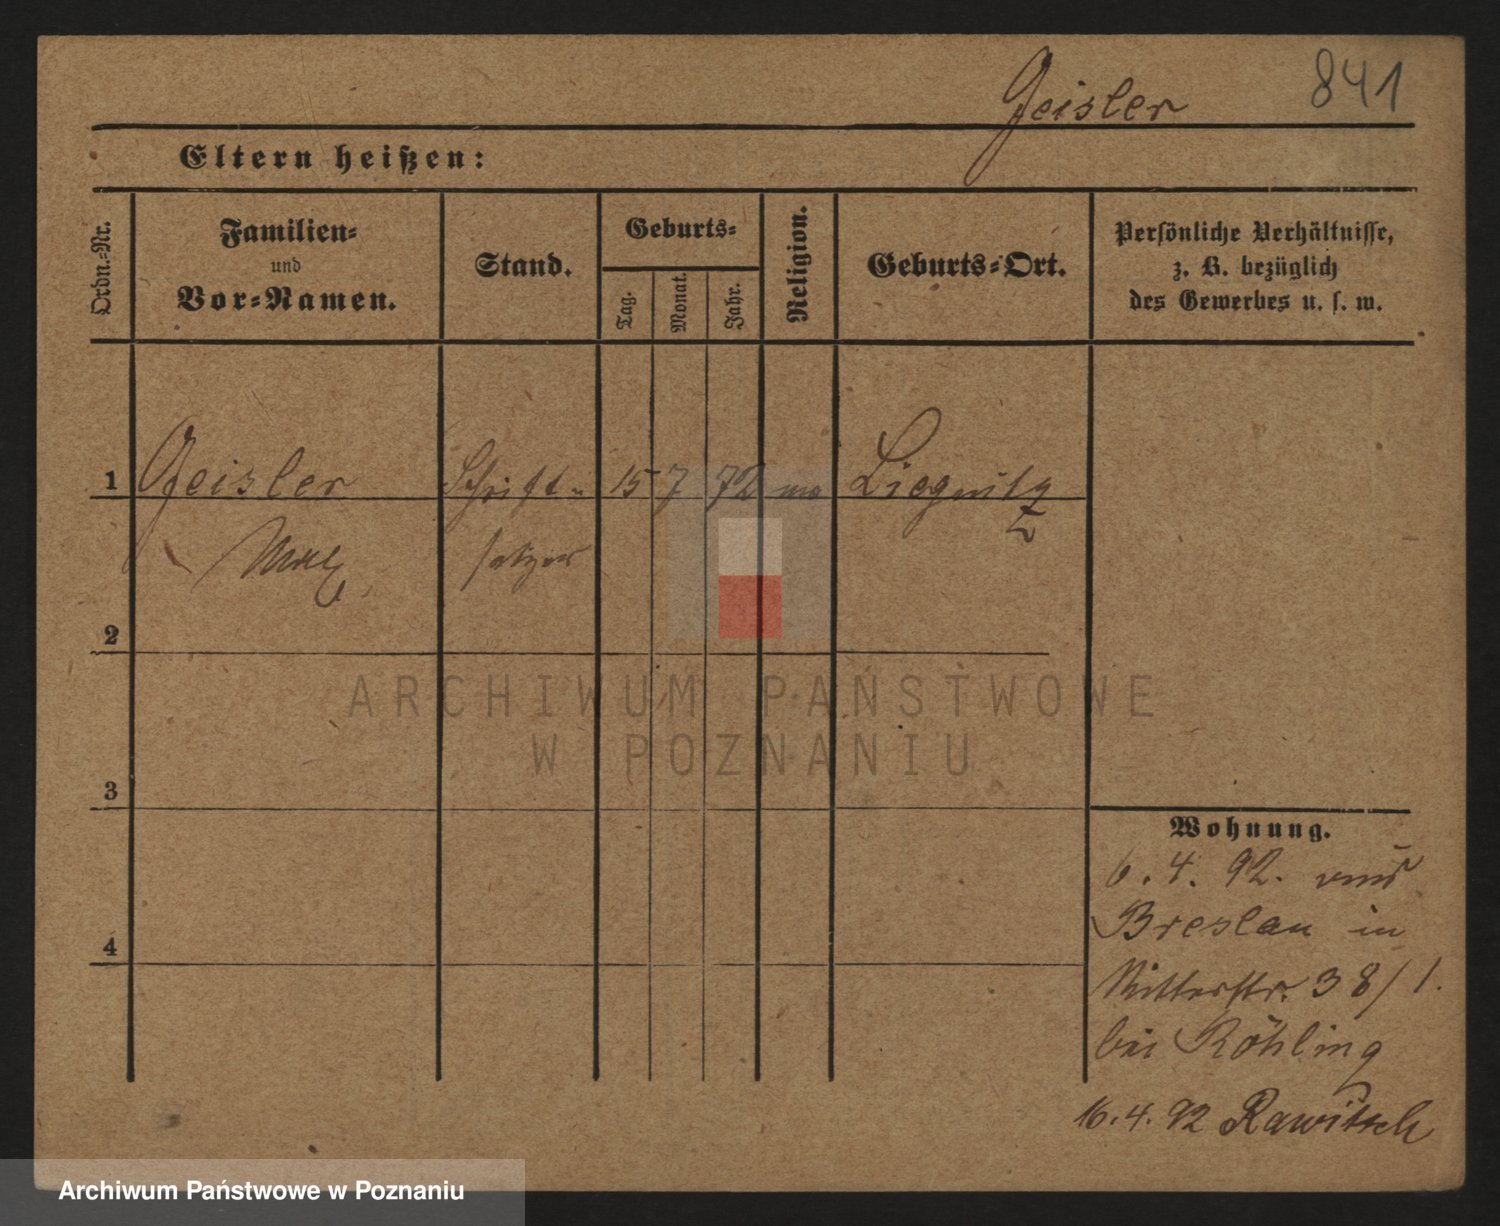 Geisler 841
Eltern heißen:
Ordn.-Nr.
Familien-
und
Vor-Namen.
Stand.
Geburts-
Tag.
Monat.
Jahr.
Religion.
Geburts-Ort.
Persönliche Verhältnisse,
z. B. bezüglich
des Gewerbes u. s. w.
1 Geisler Schrift- 15 7 72 Liegnitz
Max setzer
2
ARCHIWUM PAŃSTWOWE
W POZNANIU
3
Wohnung.
6. 4. 92. aus
Breslau in
4
Ritterstr. 38/1.
bei Röhling
16. 4. 92 Rawitsch
Archiwum Państwowe w Poznaniu